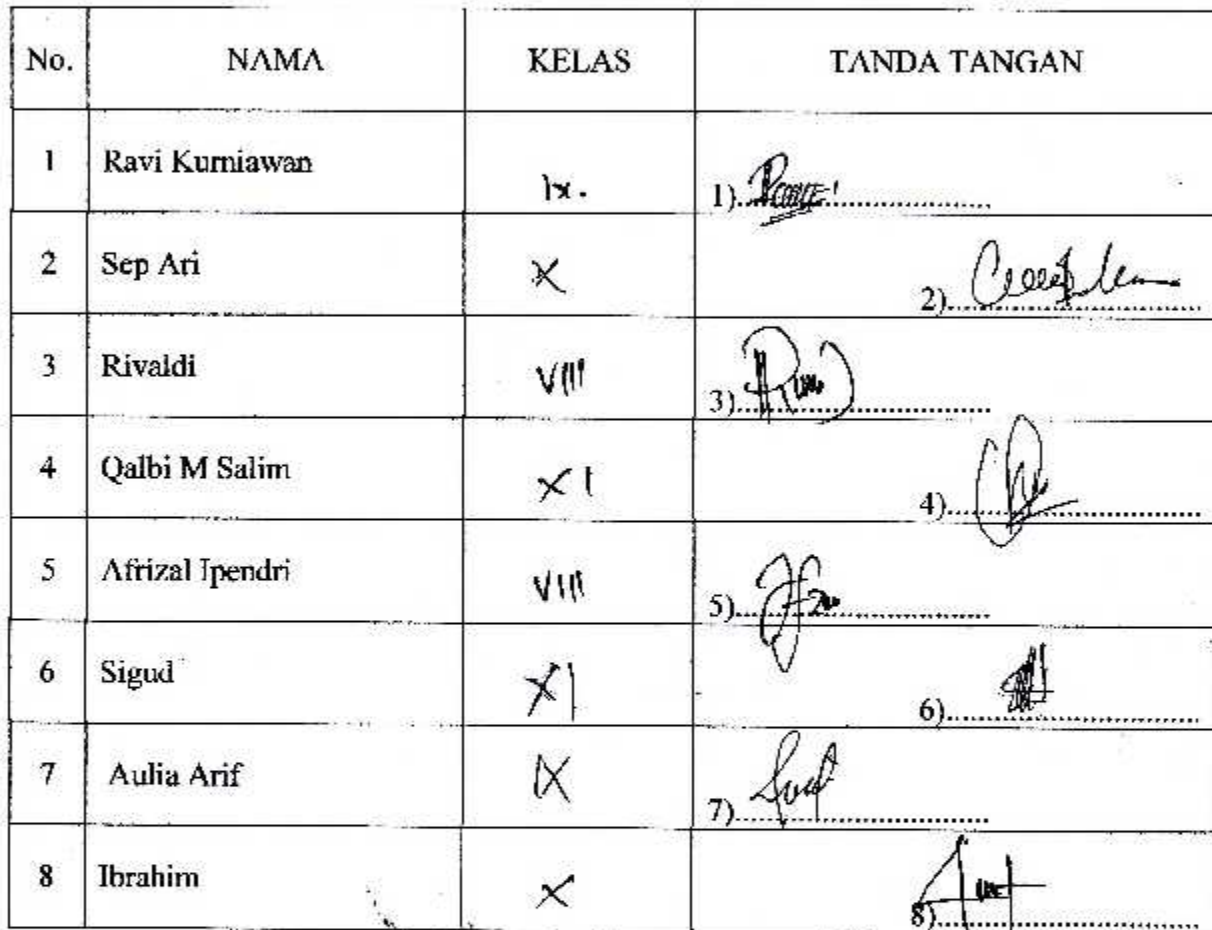 No. NAMA KELAS TANDA TANGAN
1 Ravi Kurniawan Ix. 1)
2 Sep Ari X 2)
3 Rivaldi VIII 3)
4 Qalbi M Salim XI 4)
5 Afrizal Ipendri VIII 5)
6 Sigud XI 6)
7 Aulia Arif IX 7)
8 Ibrahim X 8)